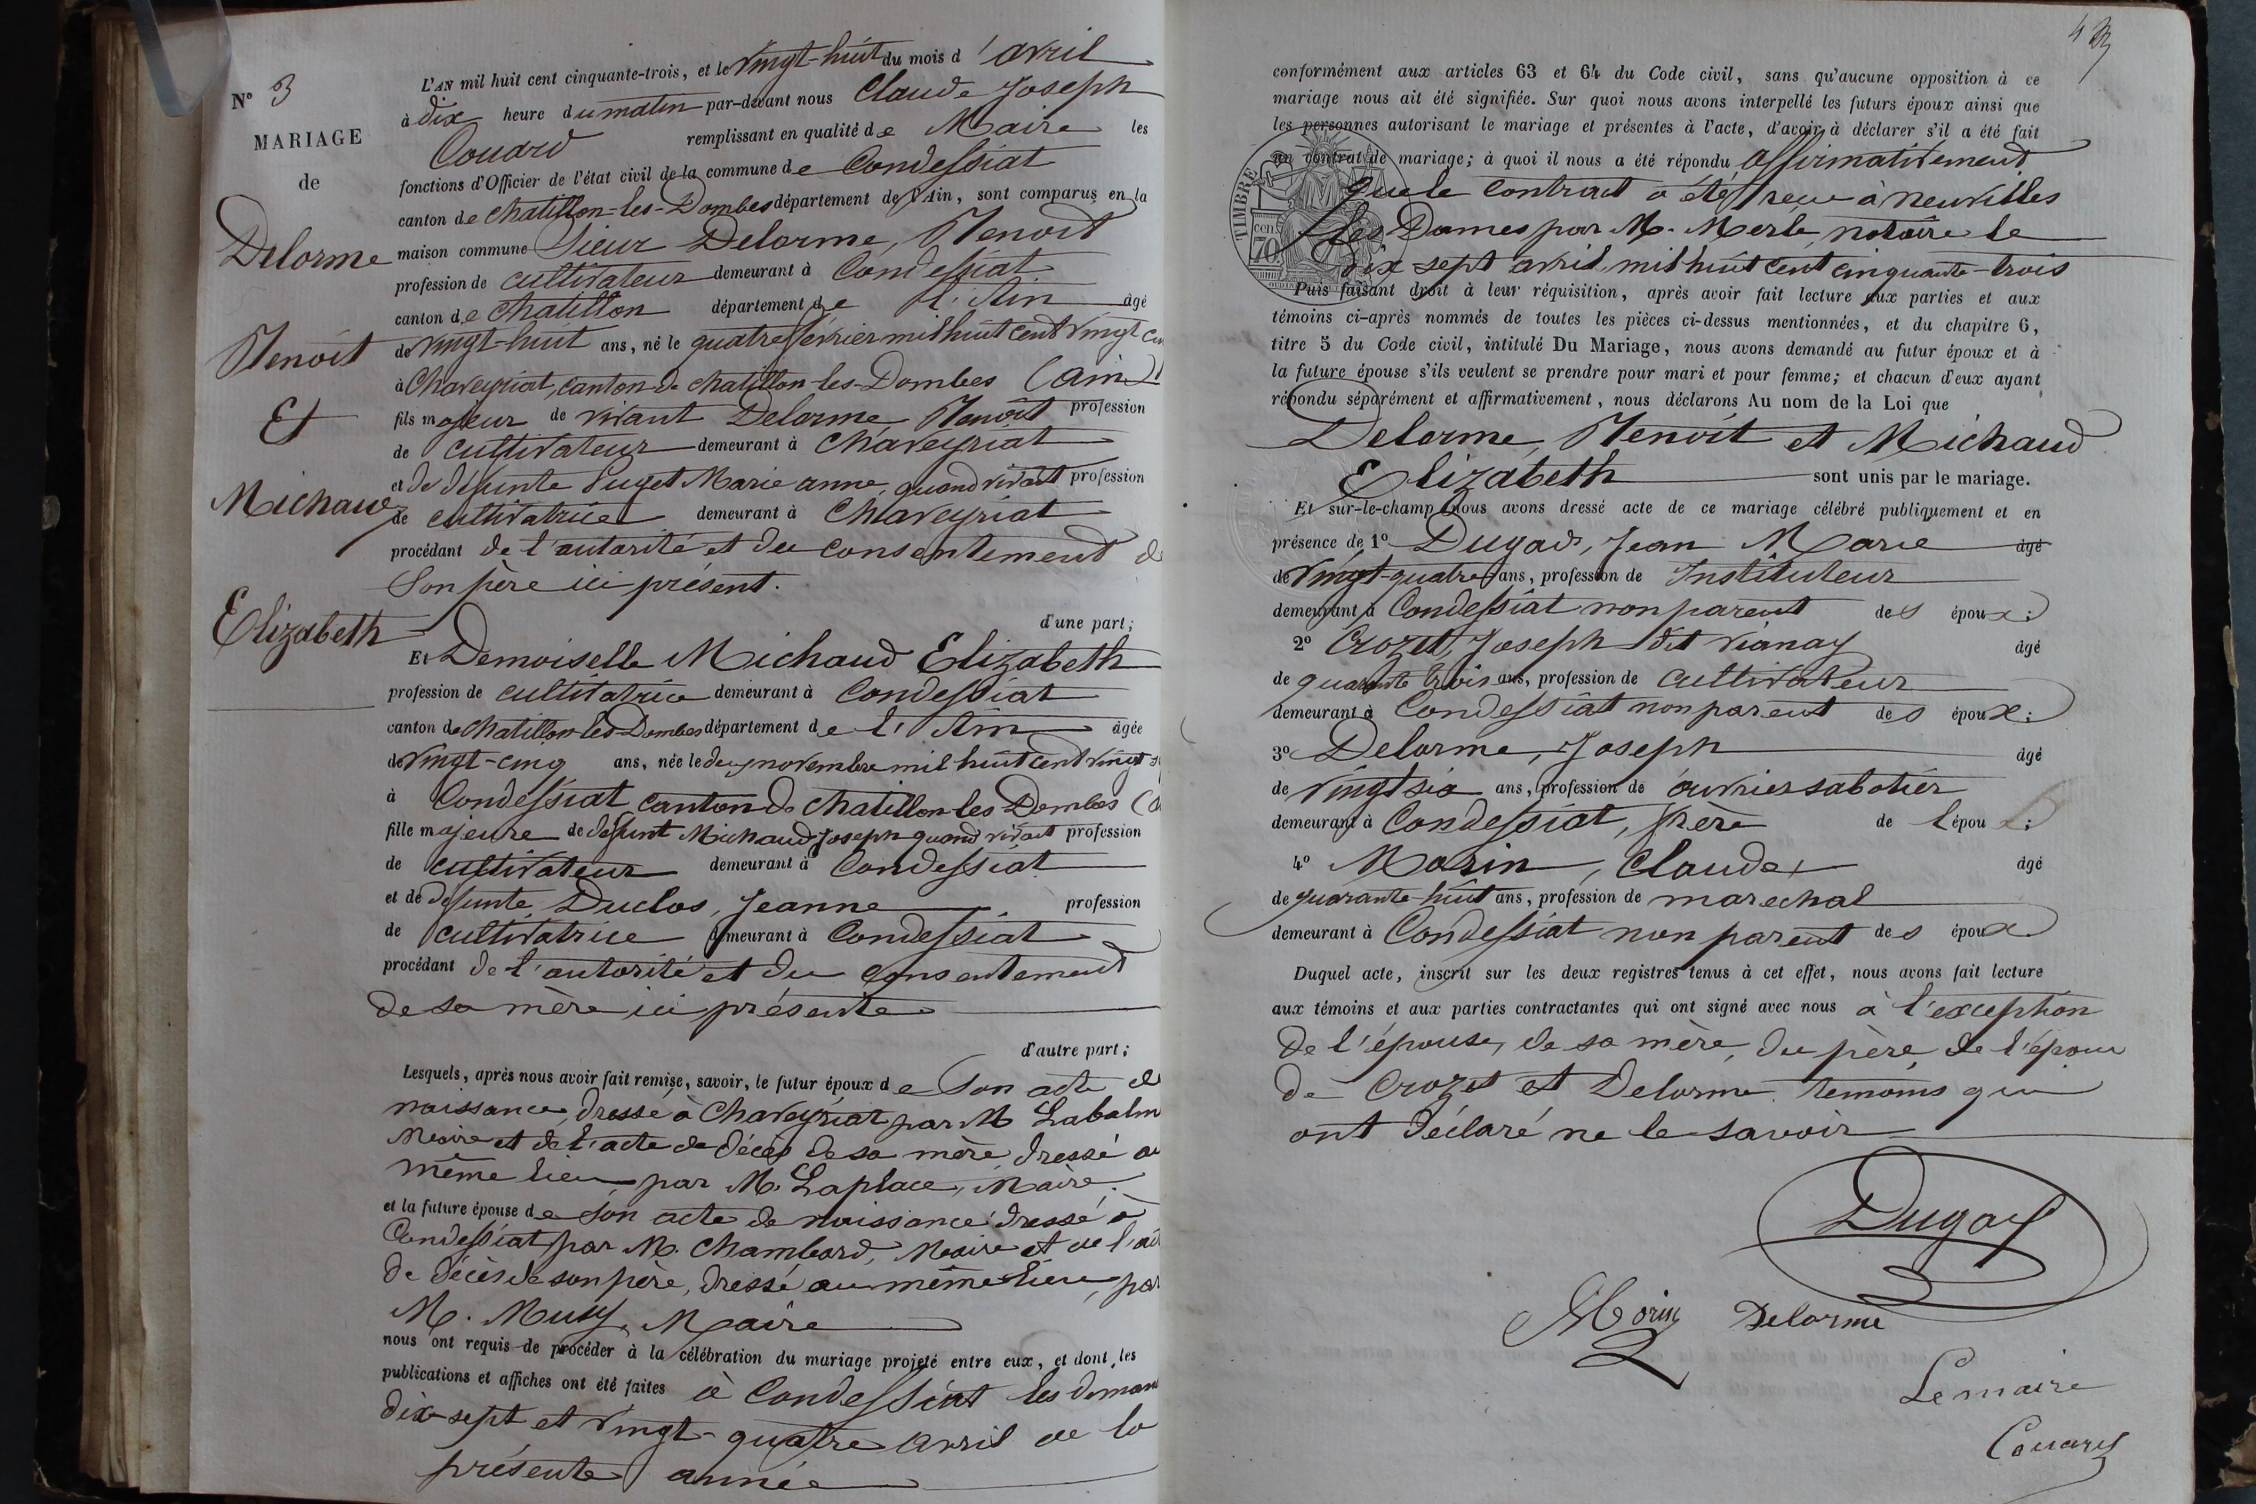 N° 3
MARIAGE
de
Delorme
Benoit
Et
Michaud
Elizabeth
L'AN mil huit cent cinquante-trois, et le Vingt-huit du mois d'avril
à dix heure du matin par-devant nous Claude Joseph
Couard remplissant en qualité de Maire les
fonctions d'Officier de l'état civil de la commune de Condessiat
canton de Chatillon-les-Dombes département de l'Ain, sont comparus en la
maison commune Sieur Delorme, Benoit
profession de cultivateur demeurant à Condessiat
canton de Chatillon département de l'Ain âgé
de vingt-huit ans, né le quatre février mil huit cent vingt
à Chaveyriat, canton de Chatillon-les-Dombes (ain)
fils majeur de vivant Delorme, Benoit profession
de cultivateur demeurant à Chaveyriat
et de défunte Puget Marie anne, quand vivait profession
de cultivatrice demeurant à Chaveyriat
procédant de l'autorité et du consentement de
Son père ici présent.
d'une part;
Et Demoiselle Michaud Elizabeth
profession de cultivatrice demeurant à Condessiat
canton de Chatillon les Dombes département de l'Ain âgée
de Vingt-cinq ans, née le deux novembre mil huit cent vingt
à Condessiat, canton de Chatillon les Dombes
fille majeure de défunt Michaud Joseph quand vivait profession
de cultivateur demeurant à Condessiat
et de défunte Duclos, Jeanne profession
de cultivatrice demeurant à Condessiat
procédant de l'autorité et du consentement
de sa mère ici présente
d'autre part;
Lesquels, après nous avoir fait remise, savoir, le futur époux de Son acte de
naissance, dressé à Chaveyriat par M Labalm
Maire et de l'acte de décès de sa mère, dressé au
même lieu par M. Laplace, Maire.
et la future épouse de son acte de naissance dressé à
Condessiat par M. Chambard, Maire et de l'act
de décès de son père, dressé au même lieu, par
M. Muty, Maire
nous ont requis de procéder à la célébration du mariage projeté entre eux, et dont les
publications et affiches ont été faites à Condessiat les diman
dix-sept et Vingt-quatre avril de la
présente année
43
conformément aux articles 63 et 64 du Code civil, sans qu'aucune opposition à ce
mariage nous ait été signifiée. Sur quoi nous avons interpellé les futurs époux ainsi que
les personnes autorisant le mariage et présentes à l'acte, d'avoir à déclarer s'il a été fait
un contrat de mariage; à quoi il nous a été répondu affirmativement
que le contrat a été reçu à neuvilles
les Dames par M. Merle, notaire le
dix sept avril mil huit cent cinquante-trois
TIMBRE
70
Puis faisant droit à leur réquisition, après avoir fait lecture aux parties et aux
témoins ci-après nommés de toutes les pièces ci-dessus mentionnées, et du chapitre 6,
titre 5 du Code civil, intitulé Du Mariage, nous avons demandé au futur époux et à
la future épouse s'ils veulent se prendre pour mari et pour femme; et chacun d'eux ayant
répondu séparément et affirmativement, nous déclarons Au nom de la Loi que
Delorme, Benoit et Michaud
Elizabeth sont unis par le mariage.
Et sur-le-champ nous avons dressé acte de ce mariage célébré publiquement et en
présence de 1° Dugas, Jean Marie âgé
de Vingt-quatre ans, profession de Instituteur
demeurant à Condessiat non parent des époux:
2° Crozet, Joseph dit Vianay âgé
de quarante trois ans, profession de cultivateur
demeurant à Condessiat non parent des époux:
3° Delorme, Joseph âgé
de vingt six ans, profession de ouvrier sabotier
demeurant à Condessiat, frère de l'épou
4° Morin, Claude âgé
de quarante-huit ans, profession de marechal
demeurant à Condessiat non parent des époux
Duquel acte, inscrit sur les deux registres tenus à cet effet, nous avons fait lecture
aux témoins et aux parties contractantes qui ont signé avec nous à l'exception
de l'épouse, de sa mère, du père de l'époux
de Crozet et Delorme temoins qui
ont déclaré ne le savoir
Dugas
Morin Delorme
Le maire
Couard